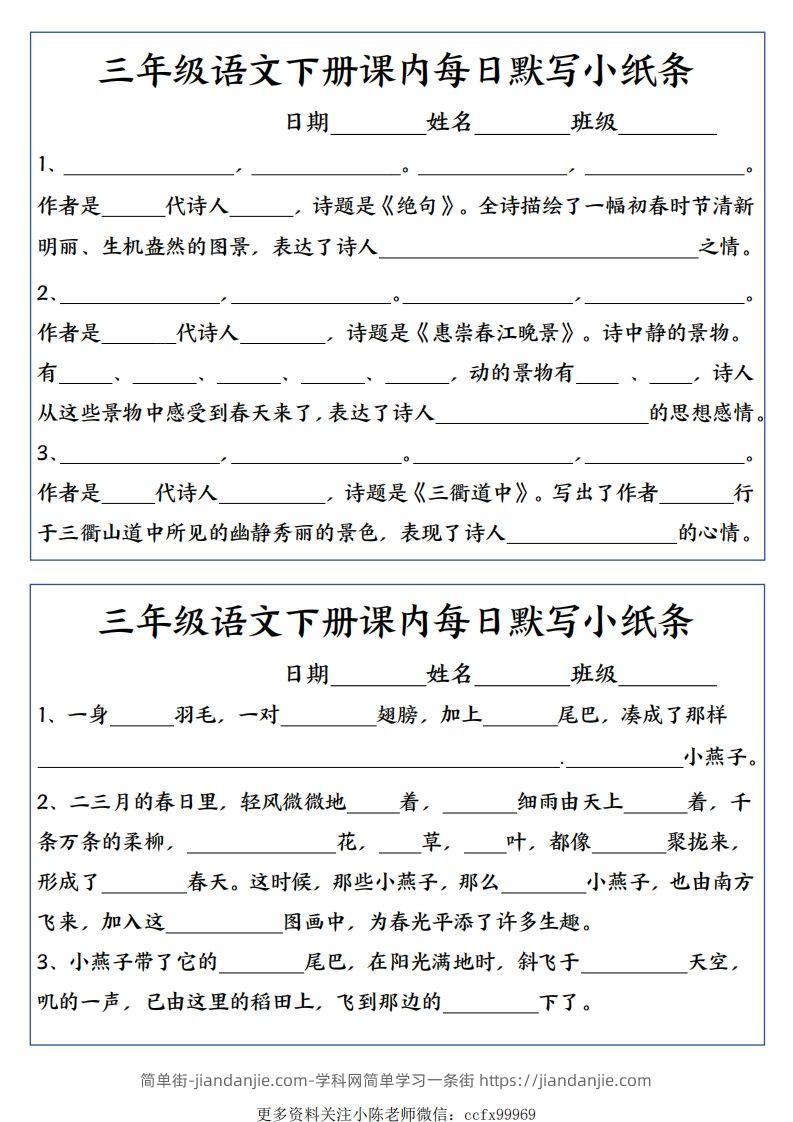 三年级语文下册课内每日默写小纸条
日期________姓名________班级________
1、________，________。________，________。
作者是______代诗人______，诗题是《绝句》。全诗描绘了一幅初春时节清新
明丽、生机盎然的图景，表达了诗人________之情。
2、________，________。________，________。
作者是______代诗人________，诗题是《惠崇春江晚景》。诗中静的景物。
有_____、______、______、______、______，动的景物有____ 、____，诗人
从这些景物中感受到春天来了，表达了诗人________的思想感情。
3、________，________。________，________。
作者是_____代诗人________，诗题是《三衢道中》。写出了作者_______行
于三衢山道中所见的幽静秀丽的景色，表现了诗人________的心情。
三年级语文下册课内每日默写小纸条
日期________姓名________班级________
1、一身______羽毛，一对________翅膀，加上_______尾巴，凑成了那样
________.________小燕子。
2、二三月的春日里，轻风微微地_____着，_______细雨由天上______着，千
条万条的柔柳，________花，____草，____叶，都像_______聚拢来，
形成了________春天。这时候，那些小燕子，那么________小燕子，也由南方
飞来，加入这________图画中，为春光平添了许多生趣。
3、小燕子带了它的________尾巴，在阳光满地时，斜飞于________天空，
叽的一声，已由这里的稻田上，飞到那边的________下了。
简单街-jiandanjie.com-学科网简单学习一条街 https://jiandanjie.com
更多资料关注小陈老师微信：ccfx99969